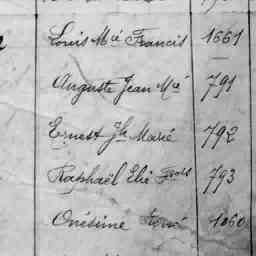 Louis Mie Francis 1661
Auguste Jean Mie 791
Ernest Jh Marie 792
Raphaël Elie Frois 793
Onésime René 1060